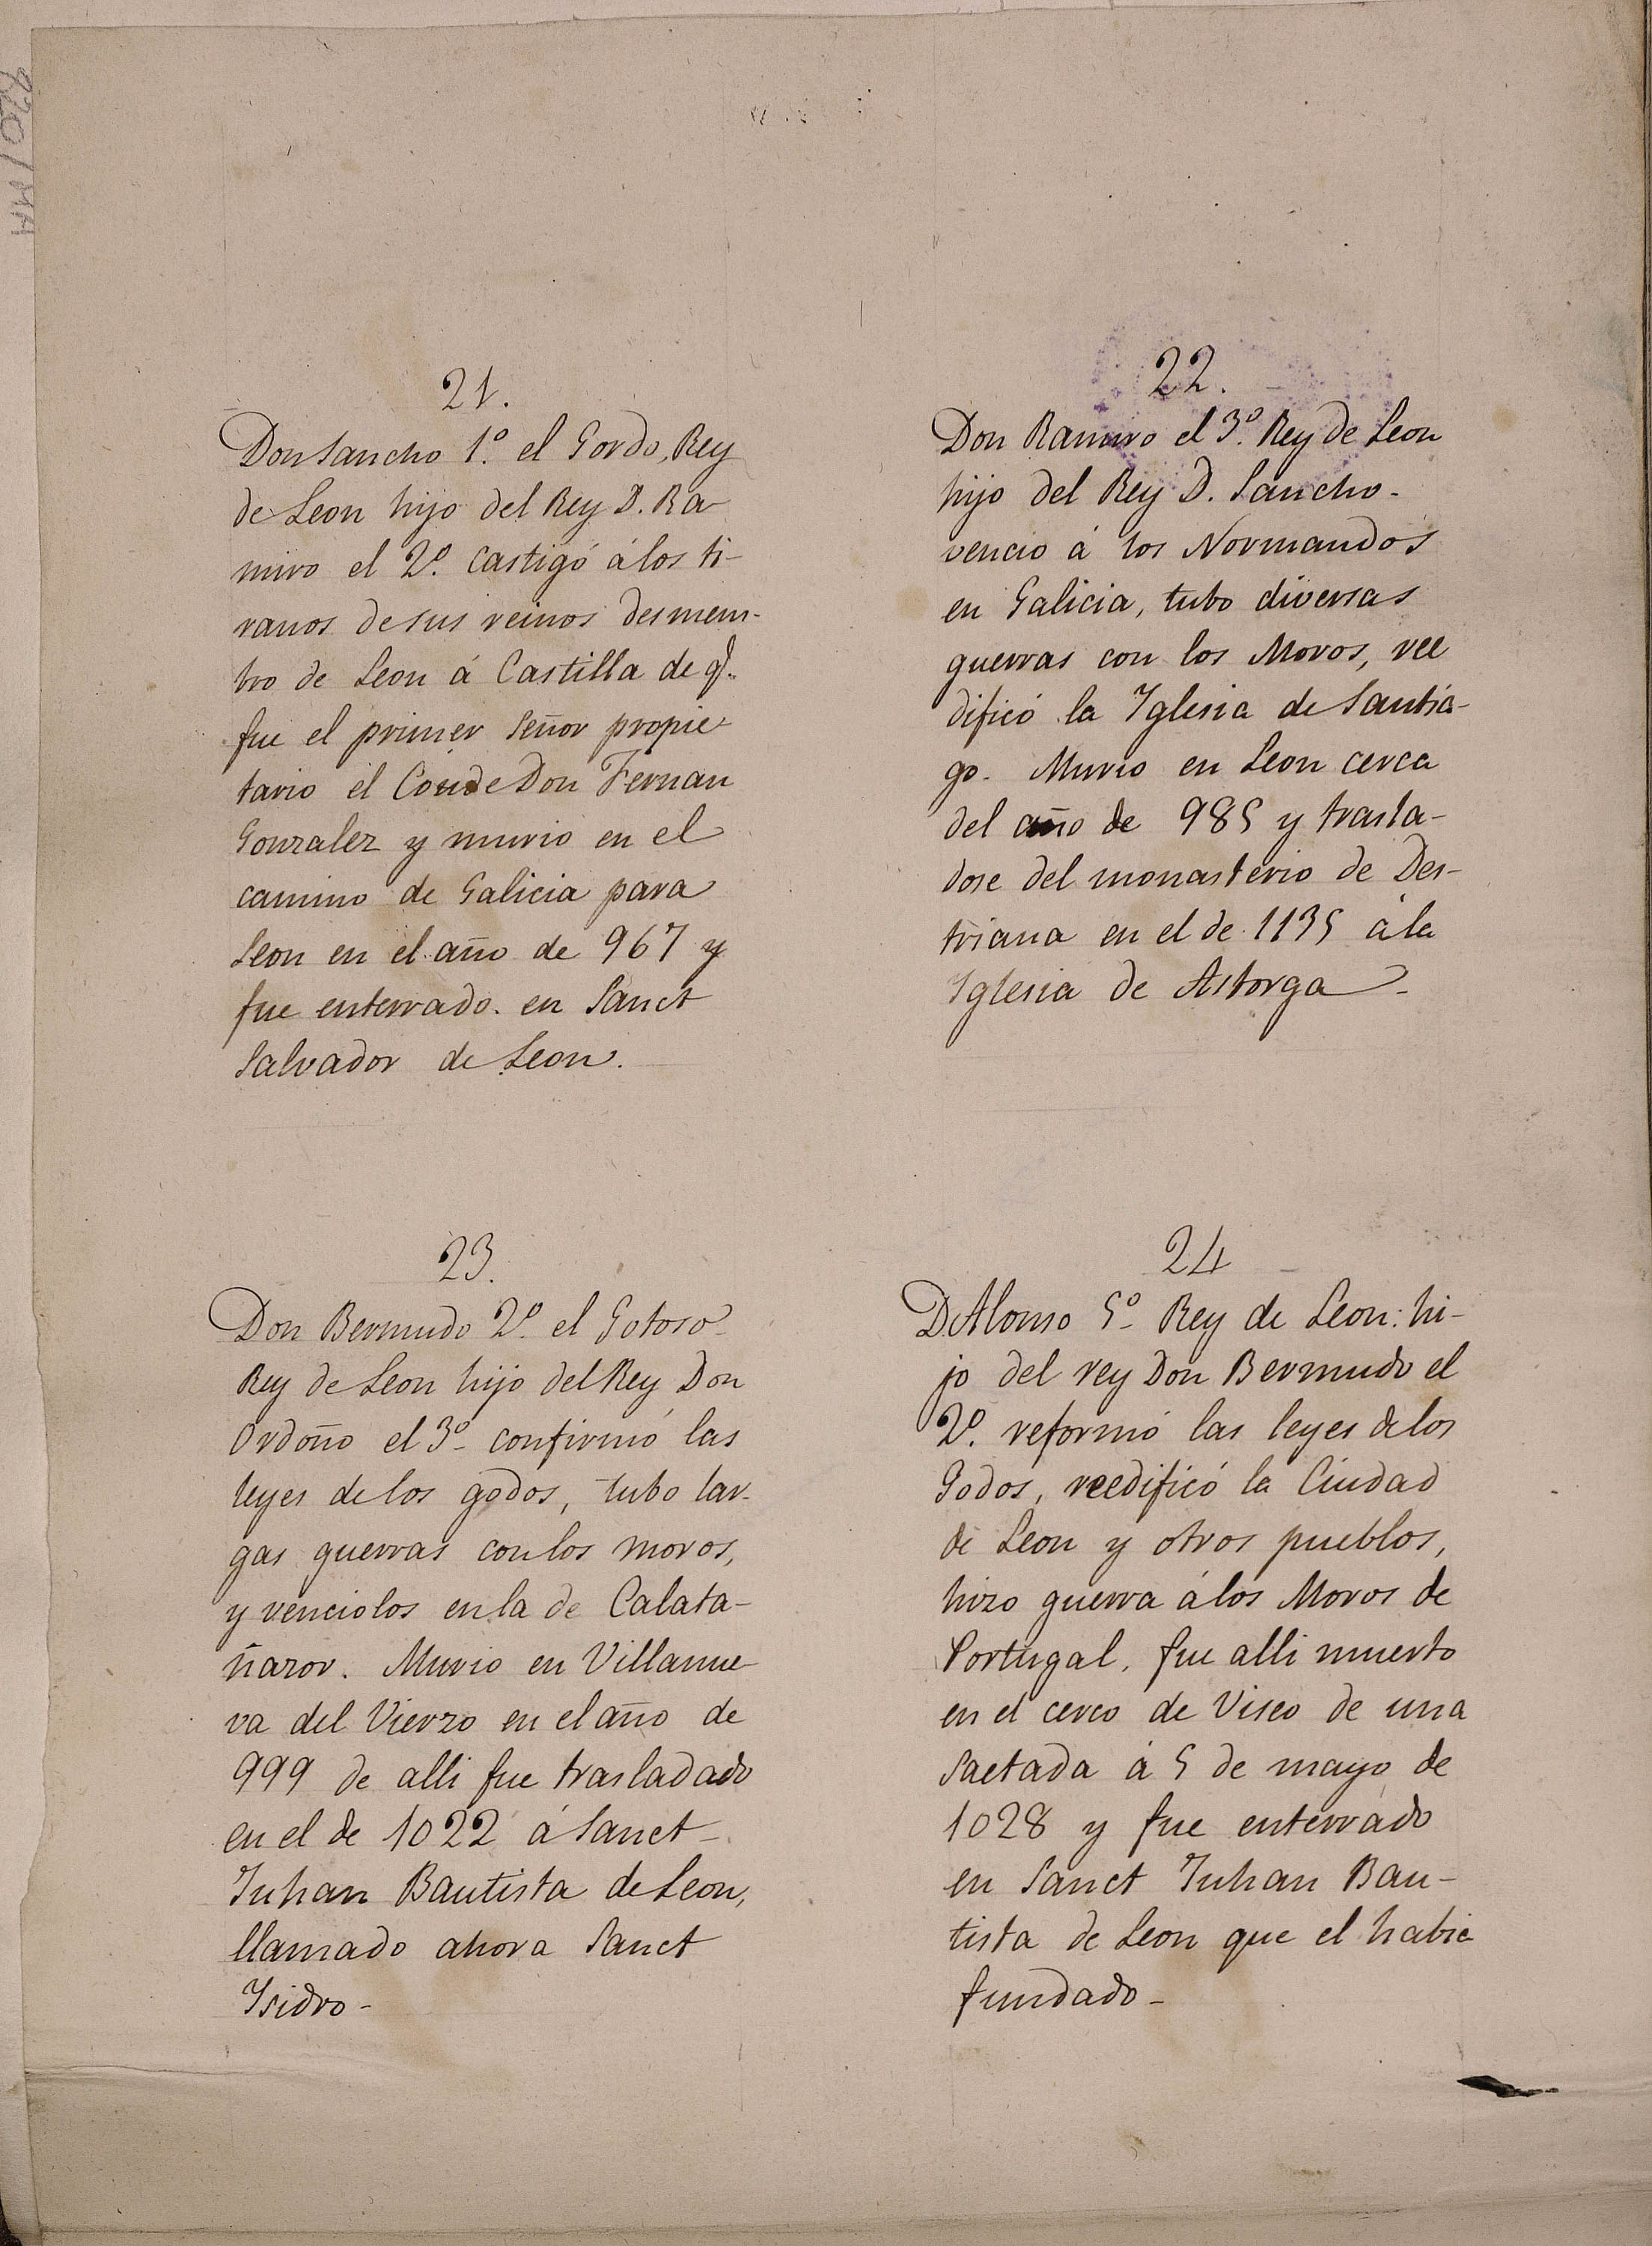 21.
Don Sancho 1º. el Gordo, Rey
de Leon hijo del Rey D. Ra
miro el 2º. castigó á los ti-
ranos de sus reinos desmem-
bro de Leon á Castilla de q.
fue el primer Señor propie
tario el Conde Don Fernan
Gonzalez y murio en el
camino de Galicia para
Leon en el año de 967 y
fue enterrado. en Sanct
Salvador de Leon.
22.
Don Ramiro el 3º. Rey de Leon
hijo del Rey D. Sancho-
vencio á los Normandos
en Galicia, tubo diversas
guerras con los Moros, ree
dificó la Iglesia de Santia-
go. Murio en Leon cerca
del año de 985 y trasla-
dose del monasterio de Des-
triana en el de 1135 á la
Iglesia de Astorga-
23.
Don Bermudo 2º. el Gotoso
Rey de Leon hijo del Rey Don
Ordoño el 3º- confirmó las
leyes de los godos, tubo lar-
gas guerras con los moros,
y venciolos en la de Calata-
ñazor. Murio en Villanue
va del Vierzo en el año de
999 de alli fue trasladado
en el de 1022 á Sanct-
Juhan Bautista de Leon,
llamado ahora Sanct
Isidro-
24
D. Alonso 5º- Rey de Leon: hi-
jo del rey Don Bermudo el
2º. reformó las leyes de los
Godos, reedificó la Ciudad
de Leon y otros pueblos,
hizo guerra á los Moros de
Portugal, fue alli muerto
en el cerco de Viseo de una
saetada á 5 de mayo de
1028 y fue enterrado
en Sanct Juhan Bau-
tista de Leon que el habia
fundado-